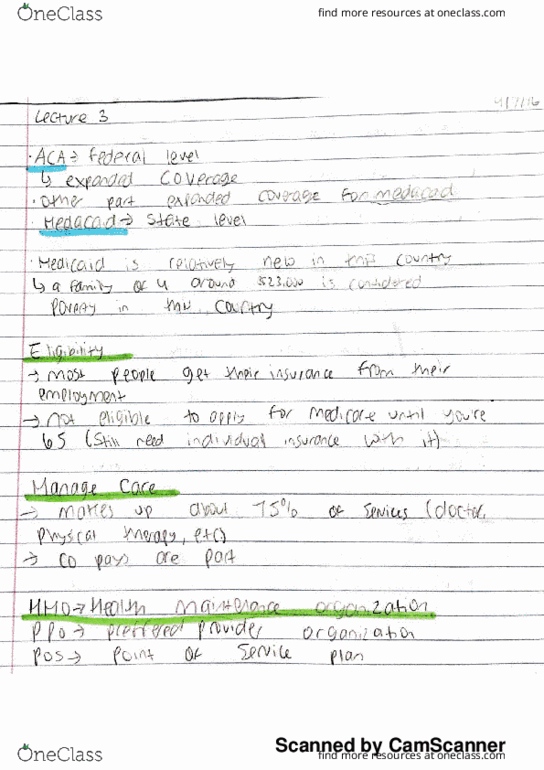 OneClass
find more resources at oneclass.com
4/7/16
Lecture 3
· ACA → Federal level
↳ expanded coverage
· other part expanded coverage for medacad
· Medacaid → State level
· Medicaid is relatively new in this country
↳ a family of 4 around $23,000 is considered
poverty in this country
Eligibility
→ most people get their insurance from their
employment
→ not eligible to apply for medicare until you're
65 (Still need individual insurance with it)
Manage Care
→ makes up about 75% of services (doctor,
physical therapy, etc)
→ co pays are part
HMO → Health maintenance organization
PPO → preffered provider organization
POS → Point of Service plan
Scanned by CamScanner
OneClass
find more resources at oneclass.com